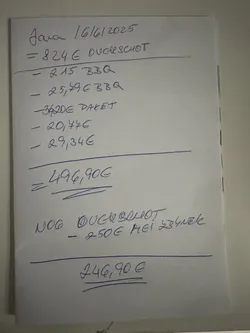 Jana 16/6/2025
= 824€ OVERSCHOT
- 215 BBQ
- 25,79€ BBQ
- 36,20€ PAKET
- 20,77€
- 29,34€
= 496,90€
NOG OVERSCHOT
- 250€ MEI
246,90€